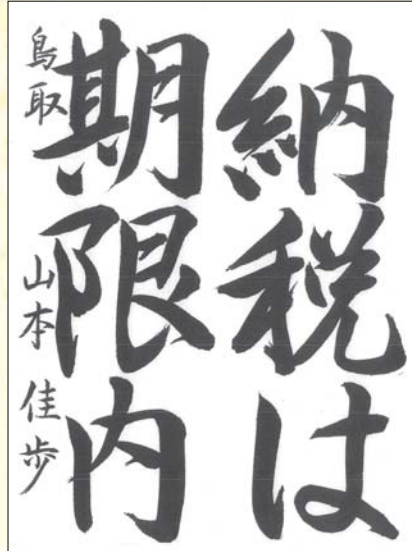 納税は
期限内
鳥取 山本 佳歩